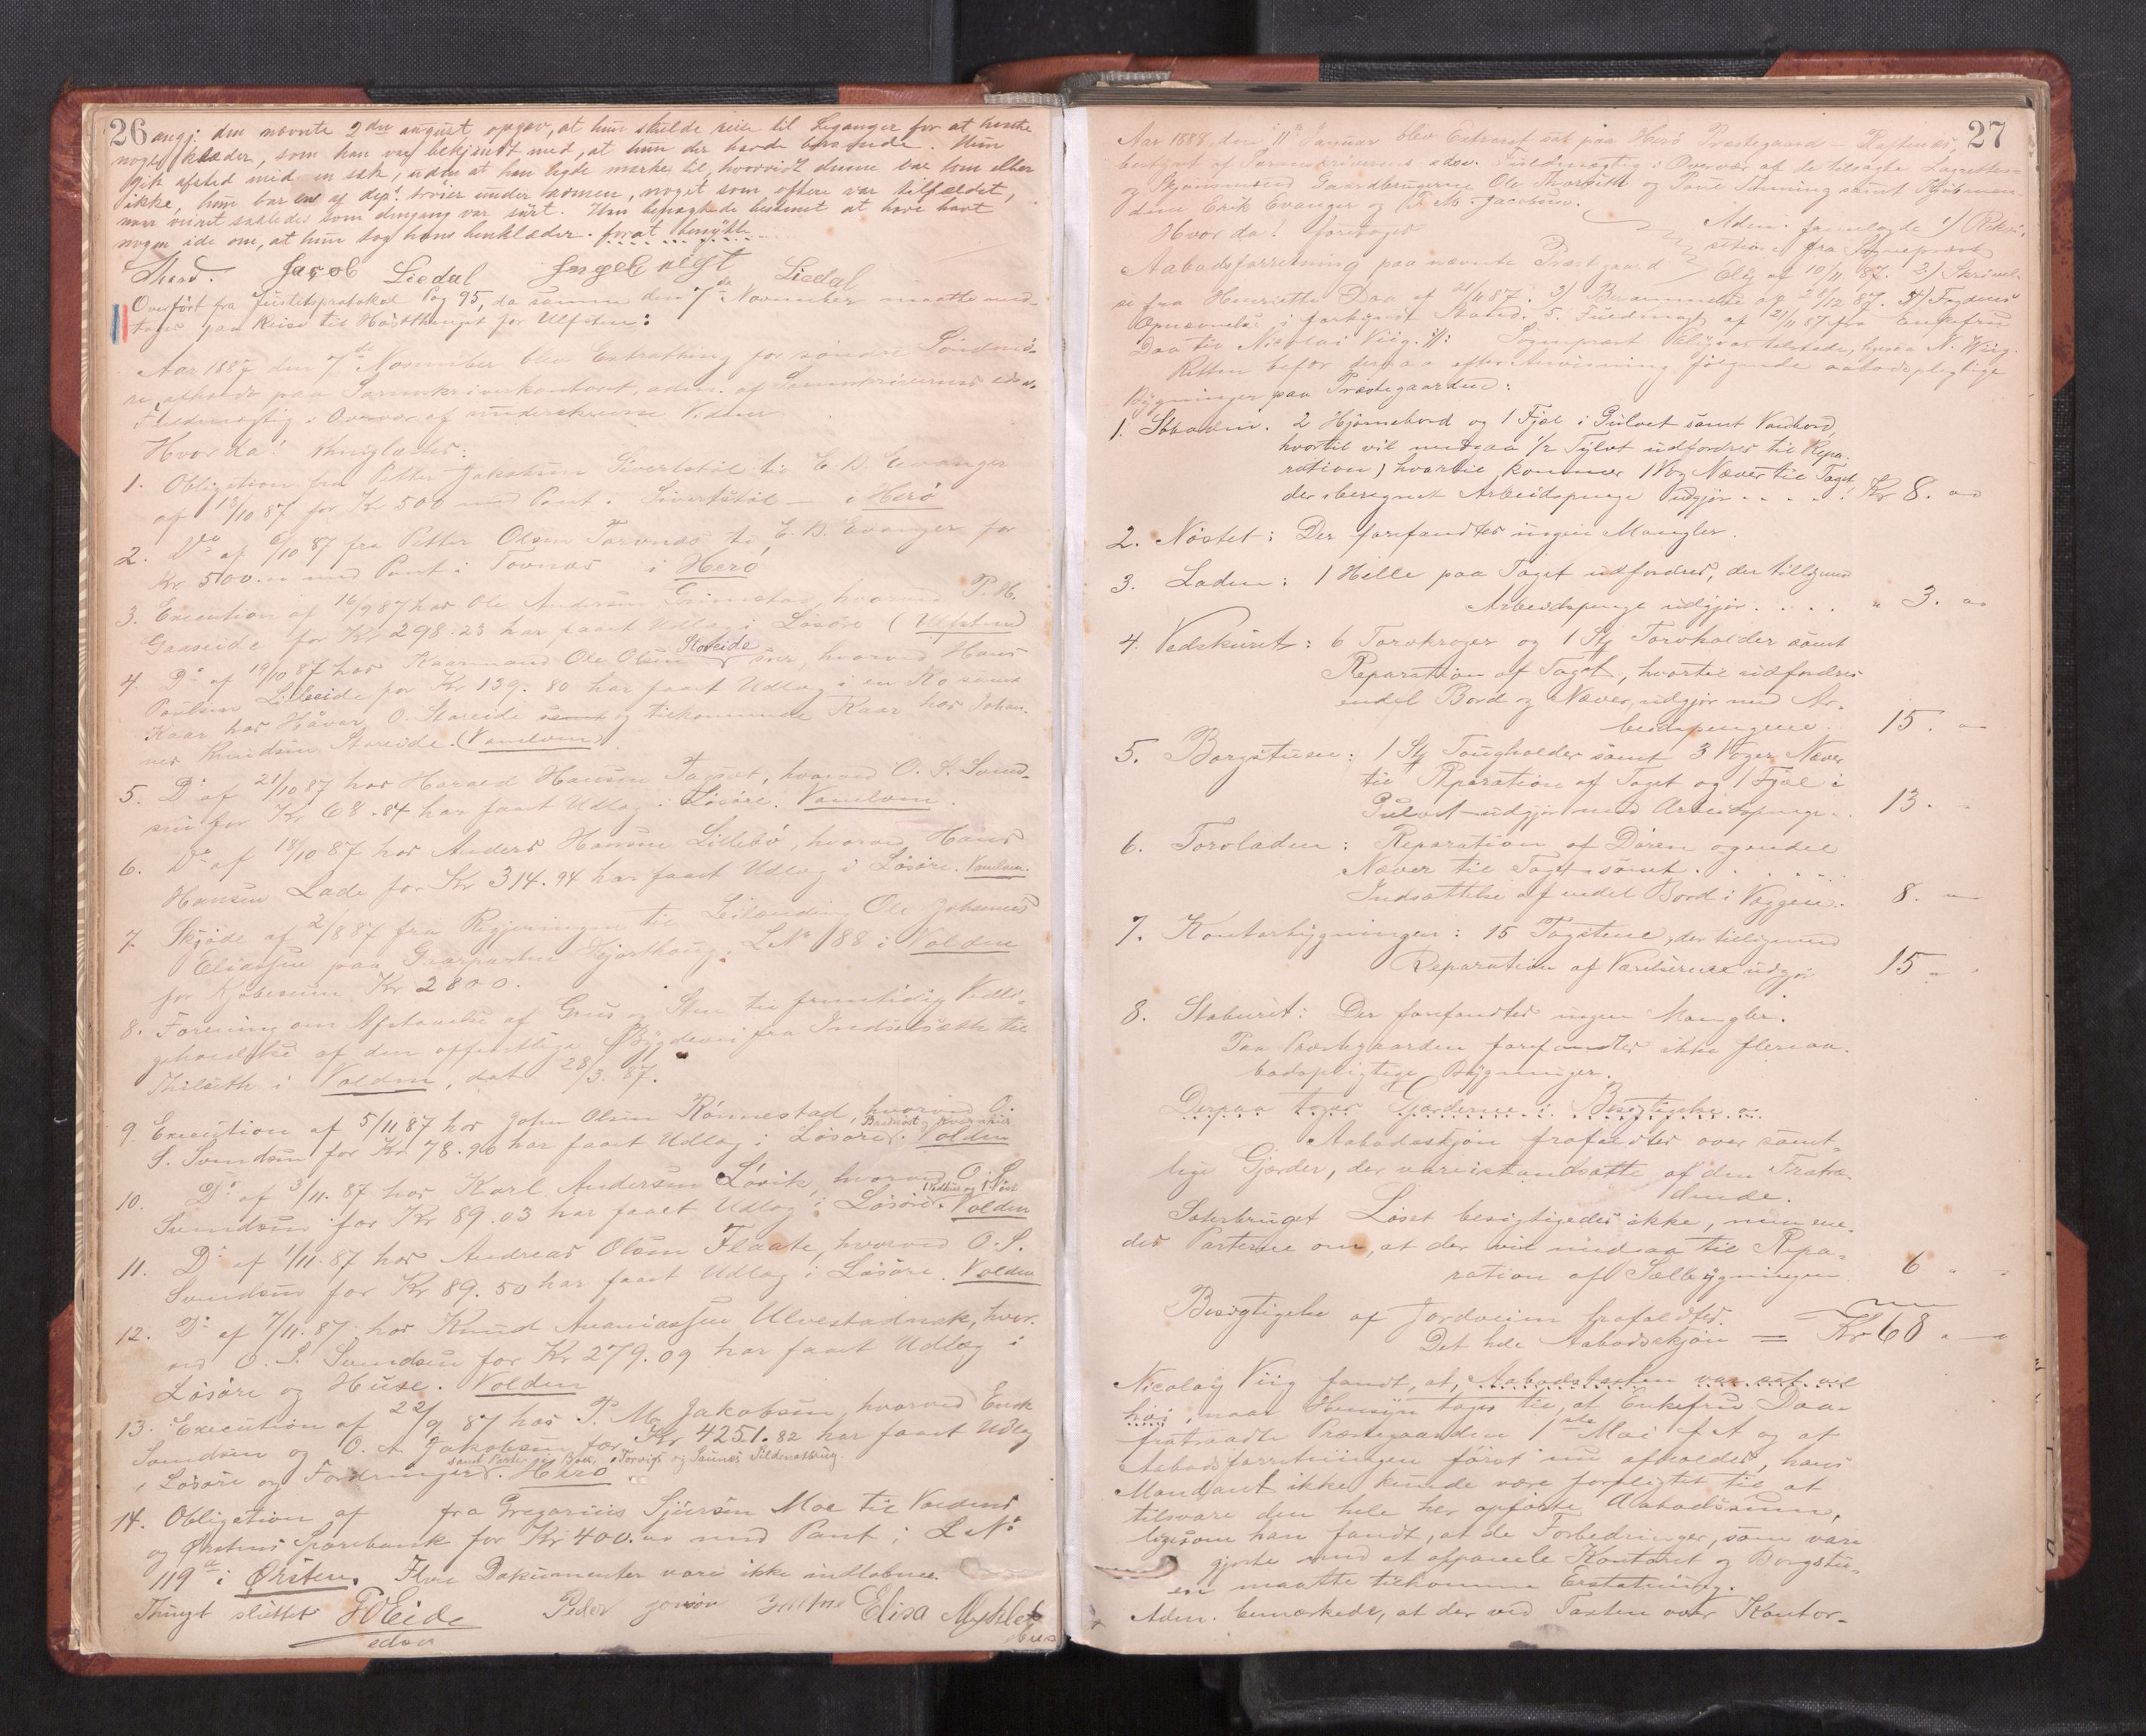 26 angj: den nævnte 2den august opgav, at hun skulde reise til Leganger for at hente
nogle klæder, som han var bekjendt med, at hun der havde beroende. Hun
gik afsted med en sæk, uden at han lagde merke til, hvorvidt denne var tom eller
ikke, hun bar en af dep.s trøier under armen, noget som oftere var tilfældet,
naar veiret saaledes som dengang var surt. Hun benægtede bestemt at have havt
nogen ide om, at hun tog hans benklæder. forat benytte
Jacob Liedal Liedal
Overført fra Justitsprotokol Pag 95, da samme den 7de November maatte med-
tages paa Reise til Høstthinget for Ulfsten:
Aar 1887 den 7de November blev Extrathing for søndre Søndmø-
re afholdt paa Sorenskriverkontoret, adm. af Sorenskriverens edsv.
Fuldmægtig i Overvær af underskrevne Vidner
Hvor da! thinglæstes:
1. Obligation fra Petter Jakobsen Sivertstøl til E. B. Evanger
af 13/10 87 for Kr 500 med Pant i Sivertstøl — i Herø
2. Do af 6/10 87 fra Petter Olsen Tarvnæs til E. B. Evanger for
Kr. 500.00 med Pant i Tovnæs i Herø
3. Execution af 16/9 87 hos Ole Andersen Grimstad, hvorved P. H.
Gaaseide for Kr 298.23 har faaet Udlæg i Løsøre (Ulfsten)
4. Do af 19/10 87 hos Kaarmand Ole Olsen Storeide, hvorved Hans
Poulsen Lilleeide for Kr 139.80 har faaet Udlæg i en Ko samt
Kaar hos Håvar O. Storeide samt og tilkommende Kaar hos Johan-
nes Knudsen Storeide. (Vanelven)
5. Do af 21/10 87 hos Harald Hansen Tagset, hvorved O. S. Svend-
sen for Kr 68.84 har faaet Udlæg i Løsøre. Vanelven.
6. Do af 18/10 87 hos Anders Hansen Lillebø, hvorved Hans
Hansen Lade for Kr 314.94 har faaet Udlæg i Løsøre. Vanelven.
7. Skjøde af 2/8 87 fra Regjeringen til Leilænding Ole Johannes
Eliassen paa Grarparten Hjorthoug. L No 188 i Volden
for Kjøbesum Kr 2800.
8. Forening om Afstaaelse af Grus og Sten til fremtidig Vedli-
geholdelse af den offentlige Bygdevei fra Indselseth til
Hilseth i Volden, dat 28/3. 87.
9. Execution af 5/11 87 hos John Olsen Rønnestad, hvorved O.
S. Svendsen for Kr 78.96 har faaet Udlæg i Løsøre. Volden
10. Do af 3/11. 87 hos Karl Andersen Løvik, hvorved O. S.
Svendsen for Kr 89.03 har faaet Udlæg i Løsøre. Volden
11. Do af 1/11. 87 hos Andreas Olsen Flaate, hvorved O. S.
Svendsen for Kr 89.50 har faaet Udlæg i Løsøre. Volden
12. Do af 7/11. 87 hos Knud Ananiassen Ulvestadbak, hvor-
ved O. S. Svendsen for Kr 279.09 har faaet Udlæg i
Løsøre og Huse. Volden
13. Execution af 22/9 87 hos P. M. Jakobsen, hvorved Enok
Samdsen og O. A. Jakobsen for Kr 4251.82 har faaet Udlæg
i Løsøre og Fordringer. Herø
14. Obligation af fra Gregorius Sjursen Moe til Voldens
og Ørstens Sparebank for Kr 400.00 med Pant i L No
119a i Ørsten. Flere Dokumenter vare ikke indløbne.
Thinget sluttet Eide Peder Elisa Myklebust
edsv
27
Aar 1888, den 11te Januar blev Extraret sat paa Herø Præstegaard —
bestyret af Sorenskriverens edsv. Fuldmægtig i Overvær af de tilsagte Lagrettes-
og Skjønsmænd Gaardbrugerne Ole Thorseth og Poul Tenning samt Kjøbmæn-
dene Erik Evanger og P. M. Jacobsen.
Hvor da! foretoges
Aabodsforretning paa nævnte Præstegaard
Adm. fremlagde 1) Rekvi-
sition fra Sogneprest
Elig af 10/11 87. 2) Skrivel-
se fra Henriette Daa af 21/11 87. 3) Berammelse af 28/12 87. 4) Fogdens
Opnævnelse i forkyndt Stand. 5. Fuldmagt af 21/11 87 fra Enkefru
Daa til Nikolai Viig. :/: Sogneprest Elig var tilstede, ligesaa N. Wiig.
Retten befor derpaa efter Anvisning følgende aabodspligtige
Bygninger paa Præstegaarden:
1. Stladen. 2 Hjørnebord og 1 Fjæl i Gulvet samt Vandbord,
hvortil vil medgaa 1/2 Tylvt udfordres til Repa-
ration, hvortil kommer 1 Vog Næver til Taget,
der iberegnet Arbeidspenge udgjør.... Kr 8. 00
2. Nøstet: Der forefandtes ingen Mangler.
3. Laden: 1 Helle paa Taget udfordres, der tilligemed
Arbeidspenge udgjør.... " 3. 00
4. Vedskuret: 6 Torvkroger og 1 Stk Torvholder samt
Reparation af Taget, hvortil udfordres
endel Bord og Næver, udgjør med Ar-
beidspengene 15. -
5. Borgstuen: 1 Stk Tougholder samt 3 Voger Næver
til Reparation af Taget og 1 Fjæl i
Gulvet udgjør med Arbeidspenge. 13. -
6. Torvladen: Reparation af Døren og endel
Næver til Taget samt.
Indsættelse af endel Bord i Væggene. 8. -
7. Kontorbygningen: 15 Tagstene, der tilligemed
Reparation af Værelserne udgjør 15 -
8. Staburet: Der forefandtes ingen Mangler.
Paa Præstegaarden forefandtes ikke flere aa-
bodspligtige Bygninger.
Derpaa toges Gjærderne i Besigtigelse og
Aabodsskjøn frafaldtes over samt-
lige Gjærder, der vare istandsatte af den Fratræ-
dende.
Sæterbruget Løset besigtigedes ikke, men ene-
des Parterne om, at der vil medgaa til Repa-
ration af Sælbygningen 6 - -
Besigtigelse af Jordveien frafaldtes.
Det hele Aabodsskjøn = Kr 68 - -
Nicolay Viig fandt, at Aabodstaxten var sat vel
høi, naar Hensyn toges til, at Enkefru Daa
fratraadte Præstegaarden 1ste Mai f A og at
Aabodsforretningen først nu afholdes, hans
Mandant ikke kunde være forpligtet til at
tilsvare den hele her opførte Aabodssum,
ligesom han fandt, at de Forbedringer, som vare
gjorte med at oppanele Kontoret og Borgstu-
en maatte tilkomme Erstatning.
Adm. bemærkede, at der ved Taxten over Kontor-